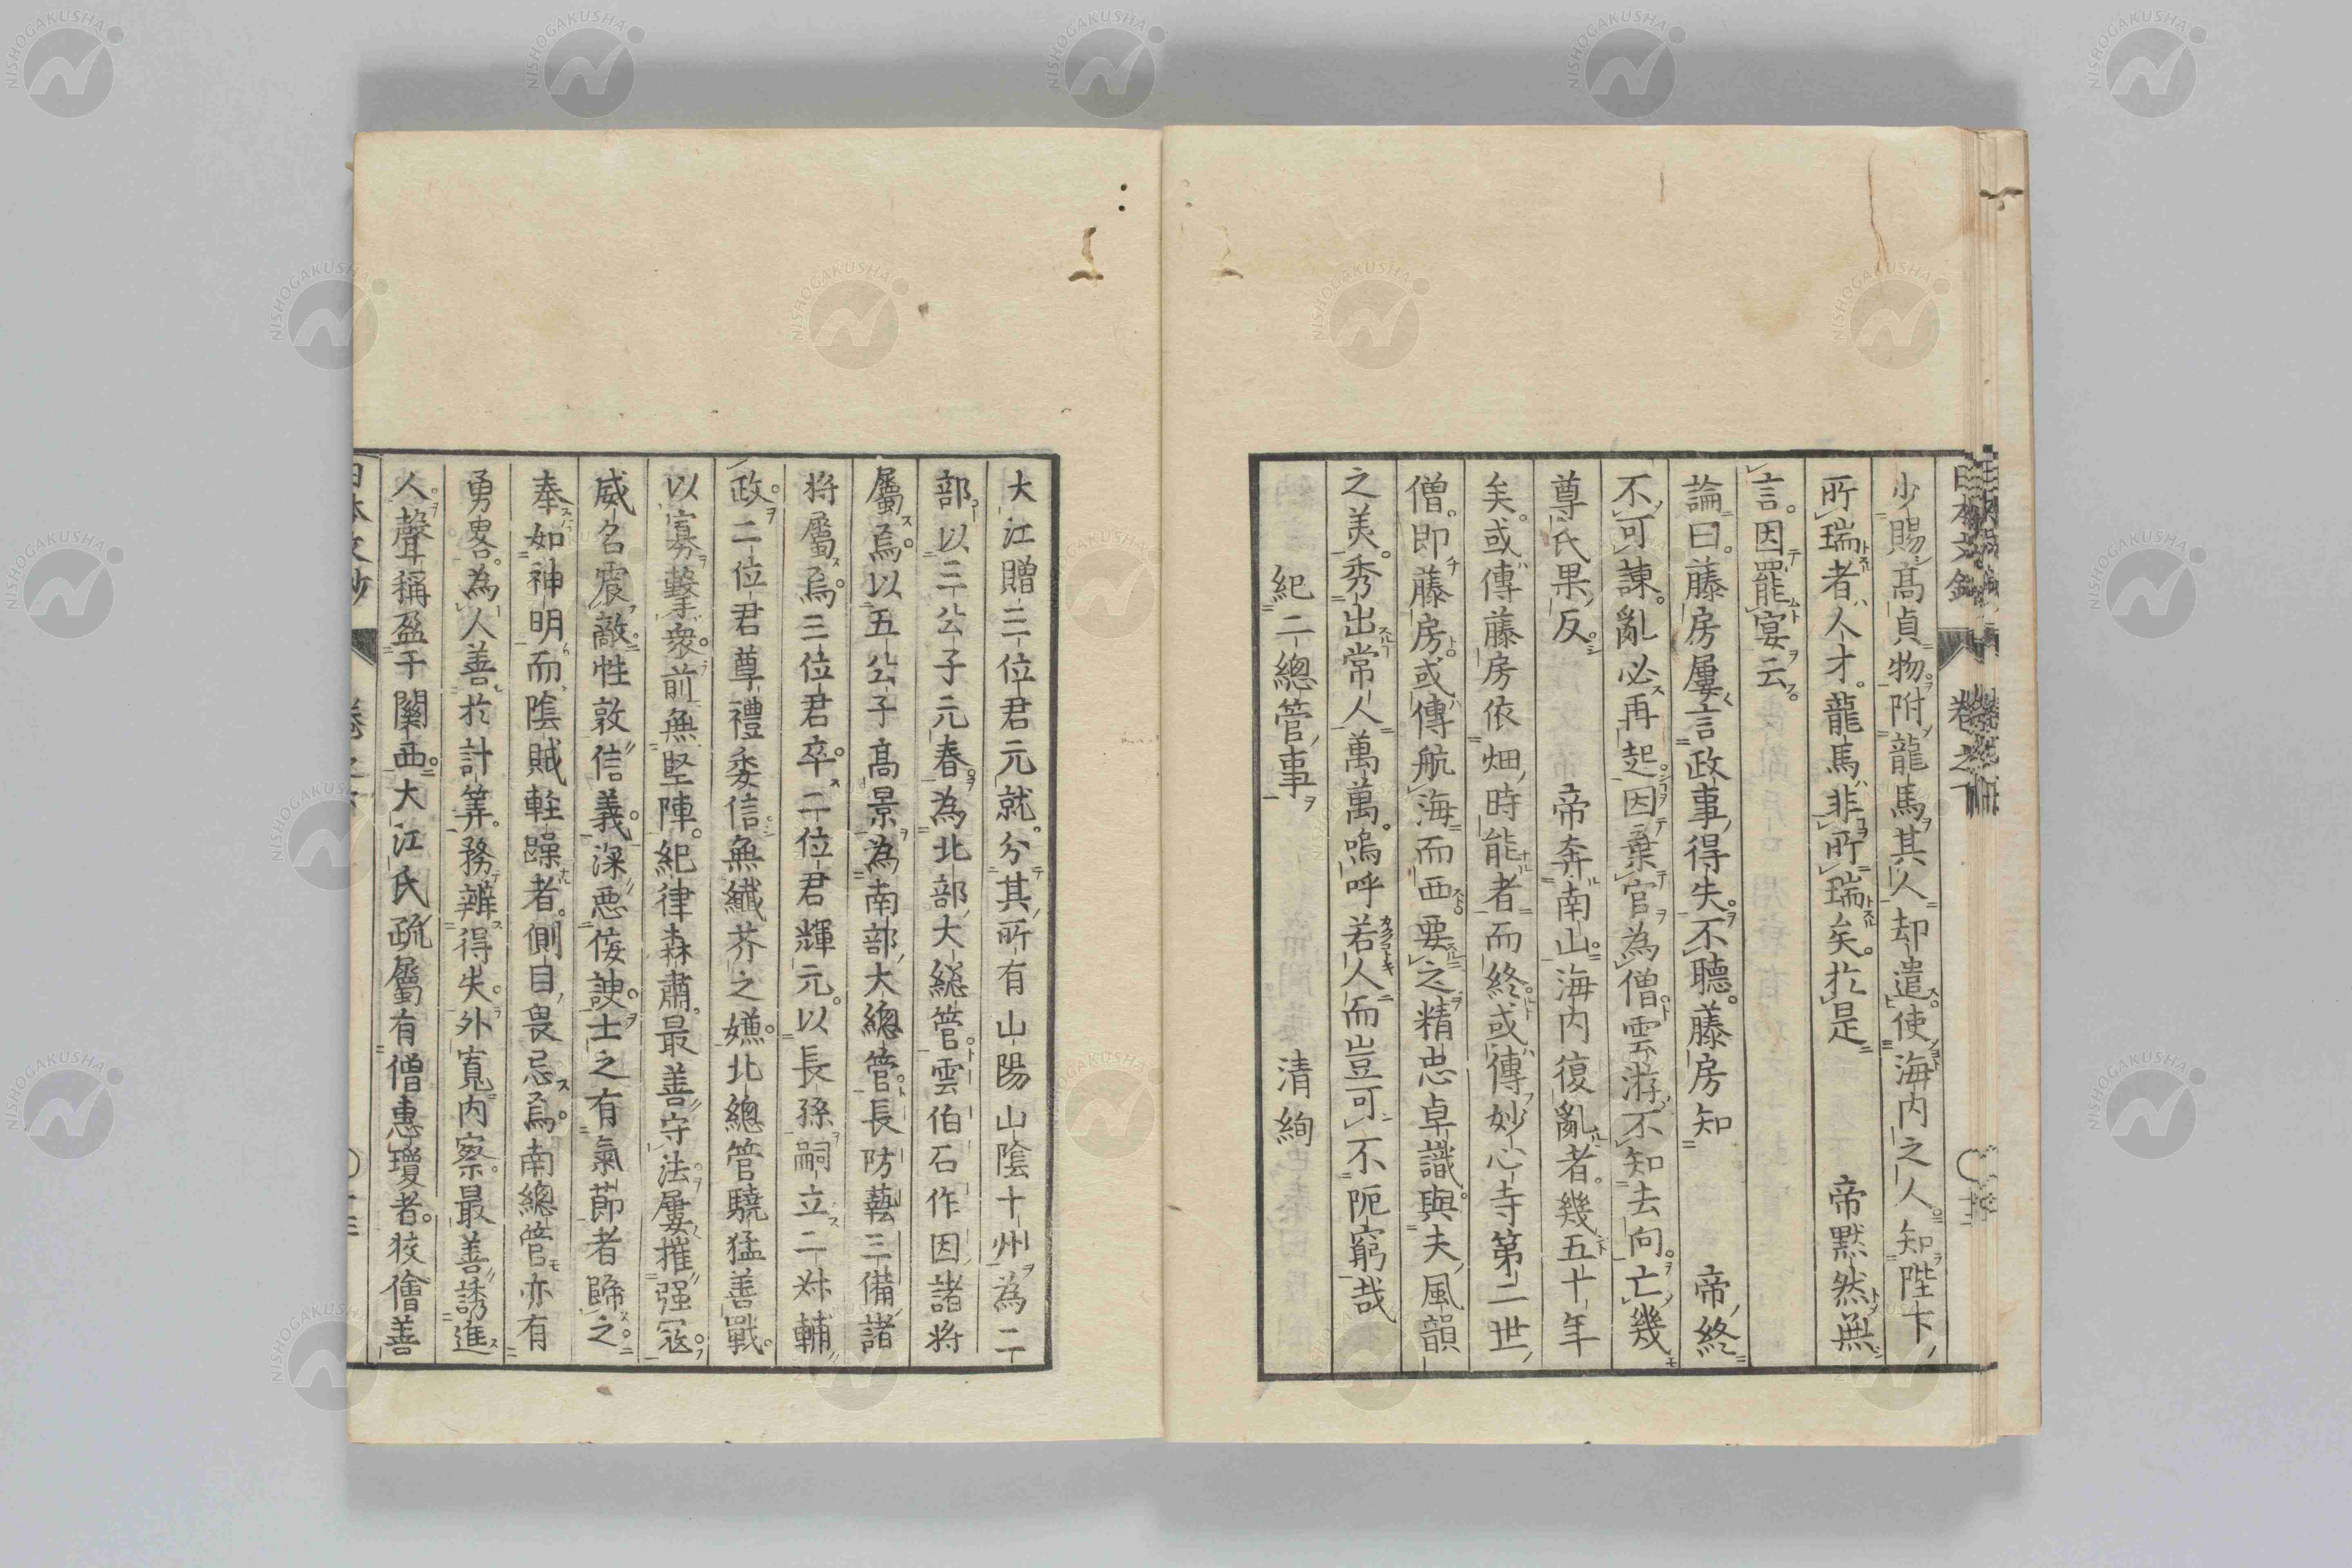 日本文鈔 卷之下
少賜高貞物附龍馬其人却遣使海内之人知陛下
所瑞者人才龍馬非所瑞矣於是 帝默然無
言因罷宴云
論曰藤房屢言政事得失不聽藤房知 帝終
不可諫亂必再起因棄官為僧雲游不知去向亡幾
尊氏果反 帝奔南山海内復亂者幾五十年
矣或傳藤房依畑時能者而終或傳妙心寺第二世
僧即藤房或傳航海而西要之精忠卓識與夫風韻
之美秀出常人萬萬嗚呼若人而豈可不阨窮哉
紀二總管事 清絢
大江贈三位君元就分其所有山陽山陰十州為二
部以三公子元春為北部大總管雲伯石作因諸將
屬焉以五公子高景為南部大總管長防藝三備諸
將屬焉三位君卒二位君輝元以長孫嗣立二叔輔
政二位君尊禮委信無纖芥之嫌北總管驍猛善戰
以寡擊衆前無堅陣紀律森肅最善守法屢摧强寇
威名震敵性敦信義深惡佞諛士之有氣節者歸之
奉如神明而陰賊輕躁者側目畏忌焉南總管亦有
勇畧為人善於計筭務辨得失外寬内察最善誘進
人聲稱盈于關西大江氏疏屬有僧惠瓊者狡儈善